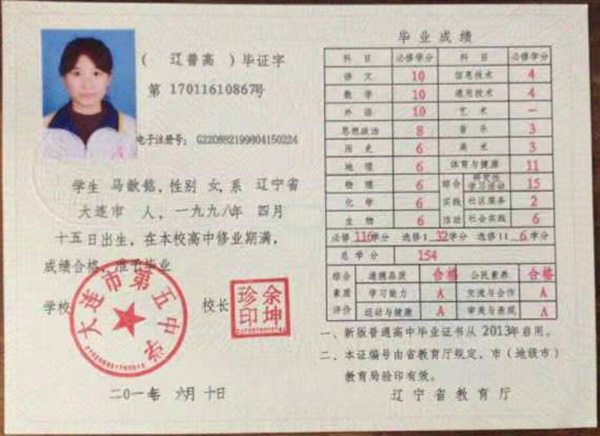 (辽普高)毕证字
第 17011610867号
电子注册号: G220882199804150224
学生 马歆铭,性别 女,系 辽宁省
大连市 人,一九九八年 四月
十五日出生,在本校高中修业期满,
成绩合格,准予毕业
学校 校长
大连市第五中学
余坤珍印
二〇一七年 六月 十日
毕业成绩
科目 必修学分 科目 必修学分
语文 10 信息技术 4
数学 10 通用技术 4
外语 10 艺术 —
思想政治 8 音乐 3
历史 6 美术 3
地理 6 体育与健康 11
物理 6 综合实践活动 研究性学习活动 15
化学 6 社区服务 2
生物 6 社会实践 6
必修 116学分 选修I 32学分 选修II 6学分
总学分 154
综合素质评价 道德品质 合格 公民素养 合格
学习能力 A 交流与合作 A
运动与健康 A 审美与表现 A
一、新版普通高中毕业证书从2013年启用。
二、本证编号由省教育厅规定,市(地级市)
教育局验印有效。
辽宁省教育厅